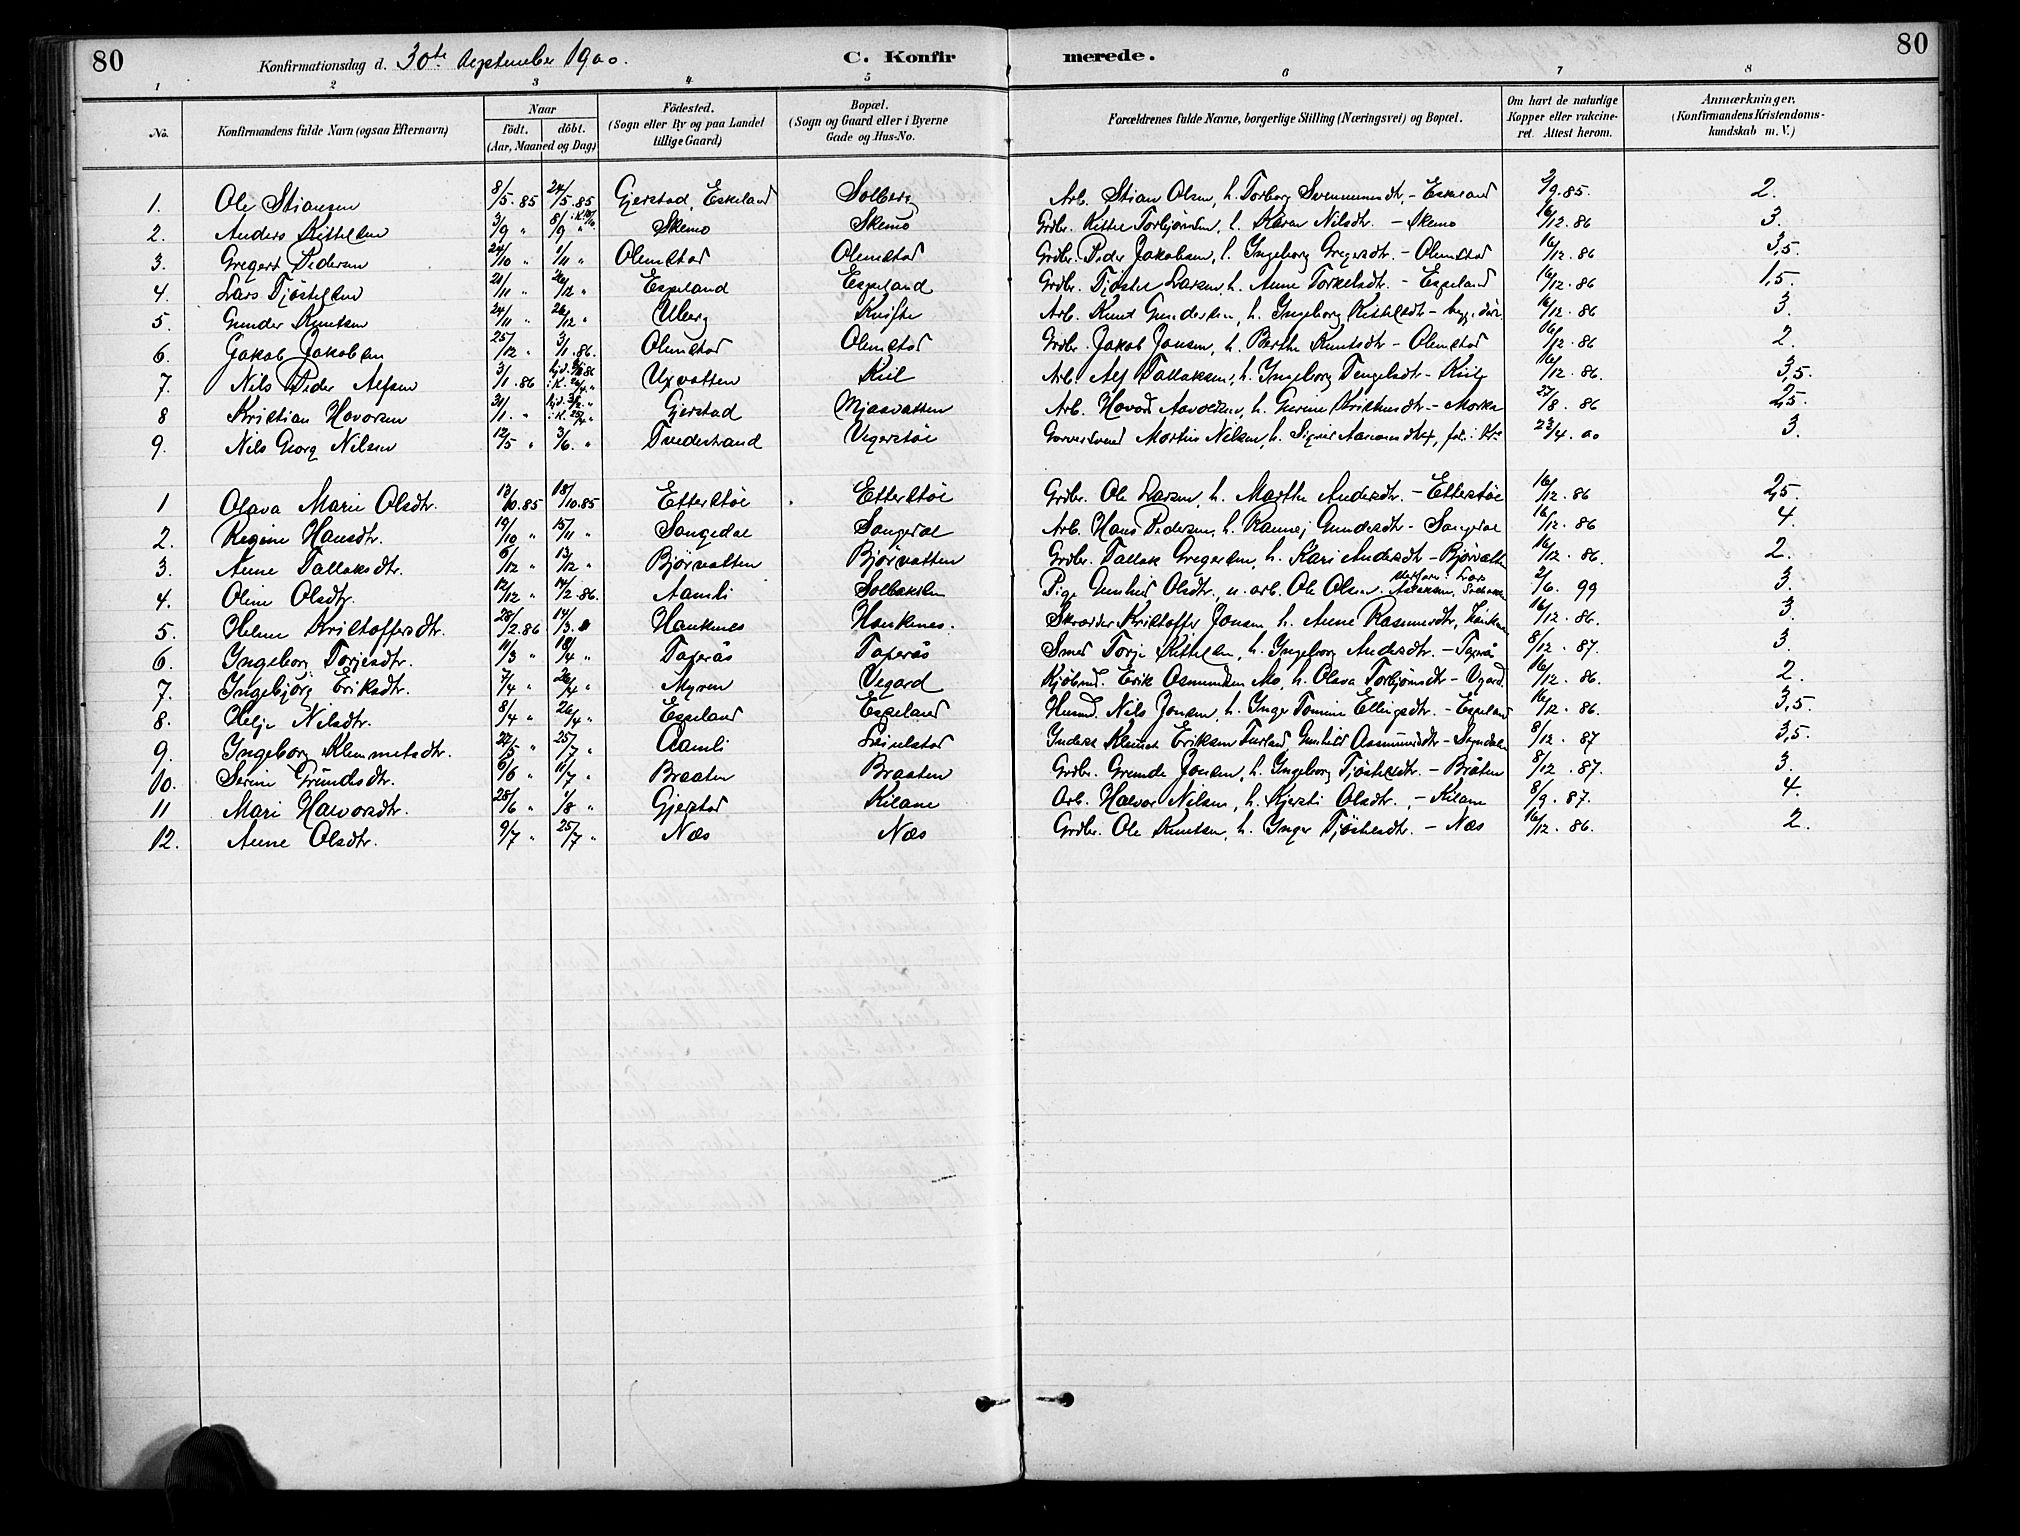 80
Konfirmationsdag d. 30te September 1900.
C. Konfir
merede.
80
1 2 3 4 5 6 7 8
No.
Konfirmandens fulde Navn (ogsaa Efternavn)
Naar
födt. döbt.
(Aar, Maaned og Dag)
Födested.
(Sogn eller By og paa Landet
tillige Gaard)
Bopæl.
(Sogn og Gaard eller i Byerne
Gade og Hus-No.
Forældrenes fulde Navne, borgerlige Stilling (Næringsvei) og Bopæl.
Om havt de naturlige
Kopper eller vakcine-
ret. Attest herom.
Anmærkninger.
(Konfirmandens Kristendoms-
kundskab m. V.)
1. Ole Stiansen 8/5.85 24/5.85 Gjerstad, Eskeland Solberg Arb. Stian Olsen, h. Torborg - Eskeland 2/9.85. 2.
2. Anders Kittelsen 3/9 " 8/9 " Skemo Skemo Grdbr. Kittel Torbjörnsen, h. Karen Nilsdtr. - Skemo 16/12.86 3.
3. Gregert Pedersen 24/10 " 1/11 " Olmstad Olmstad Grdbr. Peder Jakobsen, h. Ingeborg Gregersdtr. - Olmstad 16/12.86 3,5.
4. Lars Tjöstelsen 21/11 " 26/12 " Espeland Espeland Grdbr. Tjöstel Larsen, h. Anne Torkelsdtr. - Espeland 16/12.86 1,5.
5. Gunder Knutsen 24/11 " 26/12 " Uberg Arb. Knut Gundersen, h. Ingeborg Kittelsdtr - 16/12.86 3.
6. Jakob Jakobsen 25/12 " 3/1.86. Olmstad Olmstad Grdbr. Jakob Jensen, h. Berthe Knutsdtr - Olmstad 16/12.86 2.
7. Nils Peder Alfsen 3/1.86 Uxvatten Kiil Arb. Alf Tallaksen, h. Ingeborg Tengelsdtr - Kiil 16/12.86. 3,5.
8 Kristian Hovorsen 31/1. " Gjerstad Mjaavatten Arb. - Morka 27/8.86 2,5.
9. Nils Georg Nilsen 12/5 " 3/6. " Tvedestrand Vegerstöe Garversvend Morten Nilsen, h. 23/4.00 3.
1 Olava Marie Olsdtr. 12/10.85 18/10.85 Etterstöe Etterstöe Grdbr. Ole Larsen, h. Marthe Andersdtr. - Etterstöe 16/12.86 2,5.
2. Regine Hansdtr. 19/10 " 15/11 " Songedal Songedal Arb. Hans Pedersen, h. Rannej Gundersdtr - Songedal 16/12.86 4.
3. Anne Tallaksdtr. 6/12 " 13/12 " Björvatten Björvatten Grdbr. Tallak Gregersen, h. Kari Andersdtr - Björvatten 16/12.86. 2.
4. Oline Olsdtr. 12/12 " 14/2.86. Aamli Solbakken Pige Gunhild Olsdtr, u. arb. Ole Olsen. 2/6. 99 3.
5. Helene Kristoffersdtr. 28/2.86 14/3. Haukenes Haukenes. Skrædder Kristoffer Jonsen h. Anne Rasmusdtr, 16/12.86. 3.
6. Ingeborg Torjesdtr. 11/3 " 18/4 " Taxeräs Taxeräs Smed Torje Kittelsen, h. Ingeborg Andersdtr. - 8/12.87. 3.
7. Ingebjörg Eriksdtr. 7/4 " 26/4 " Myren Vegard Kjöbmd. Erik Osmundsen Mo, h. Olava Torbjörnsdtr - Vegard. 16/12.86. 2.
8. Helje Nilsdtr. 8/4 " 26/4 " Espeland Espeland Husmd. Nils Jonsen, h. Inger Tomine Ellingsdtr. - Espeland 16/12.86. 3,5.
9. Ingeborg Klemmetsdtr. 22/5 " 25/7 " Aamli Inderst Klemet Eriksen Gunhild Osmundsdtr 8/12.87 3,5.
10. Serine Grundesdtr. 6/6 " 11/7 " Braaten Braaten Grdbr. Grunde Jonsen, h. Ingeborg Tjöstelsdtr. - Bråten 8/12.87. 3.
11 Mari Halvorsdtr. 28/6 " 1/8 " Gjerstad Kilane Arb. Halvor Nilsen, h. Kjersti Olsdtr. - Kilane 8/9.87. 4.
12. Anne Olsdtr. 9/7 " 25/7 " Næs Næs Grdbr. Ole Knutsen, h. Inger Tjöstelsdtr. - Næs 16/12.86. 2.